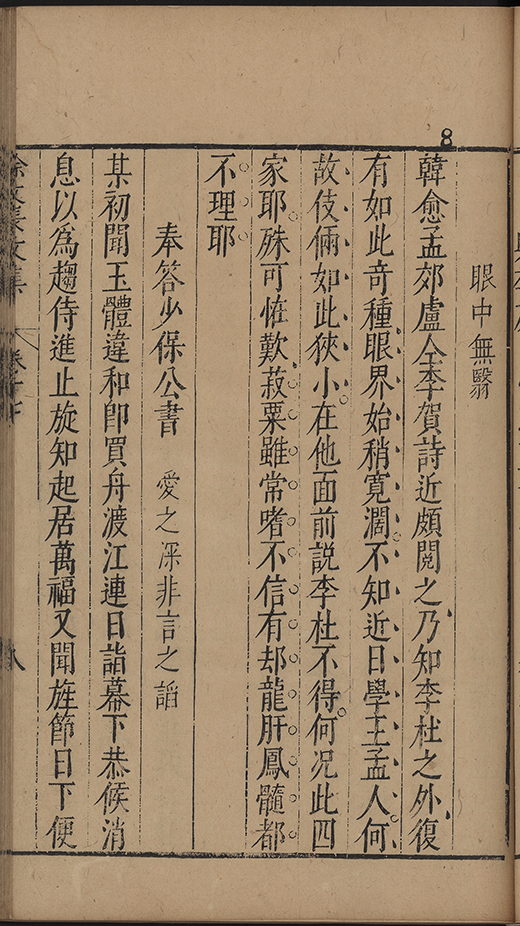 8
眼中無翳
韓愈孟郊盧仝李賀詩近頗閱之乃知李杜之外復
有如此奇種眼界始稍寬濶不知近日學王孟人何
故伎倆如此狹小在他面前説李杜不得何况此四
家耶殊可恠歎菽粟雖常嗜不信有却龍肝鳳髓都
不理耶
奉答少保公書 愛之深非言之謟
某初聞玉體違和卽買舟渡江連日詣幕下恭候消
息以爲趨侍進止旋知起居萬福又聞旌節日下便
徐文長文集 八